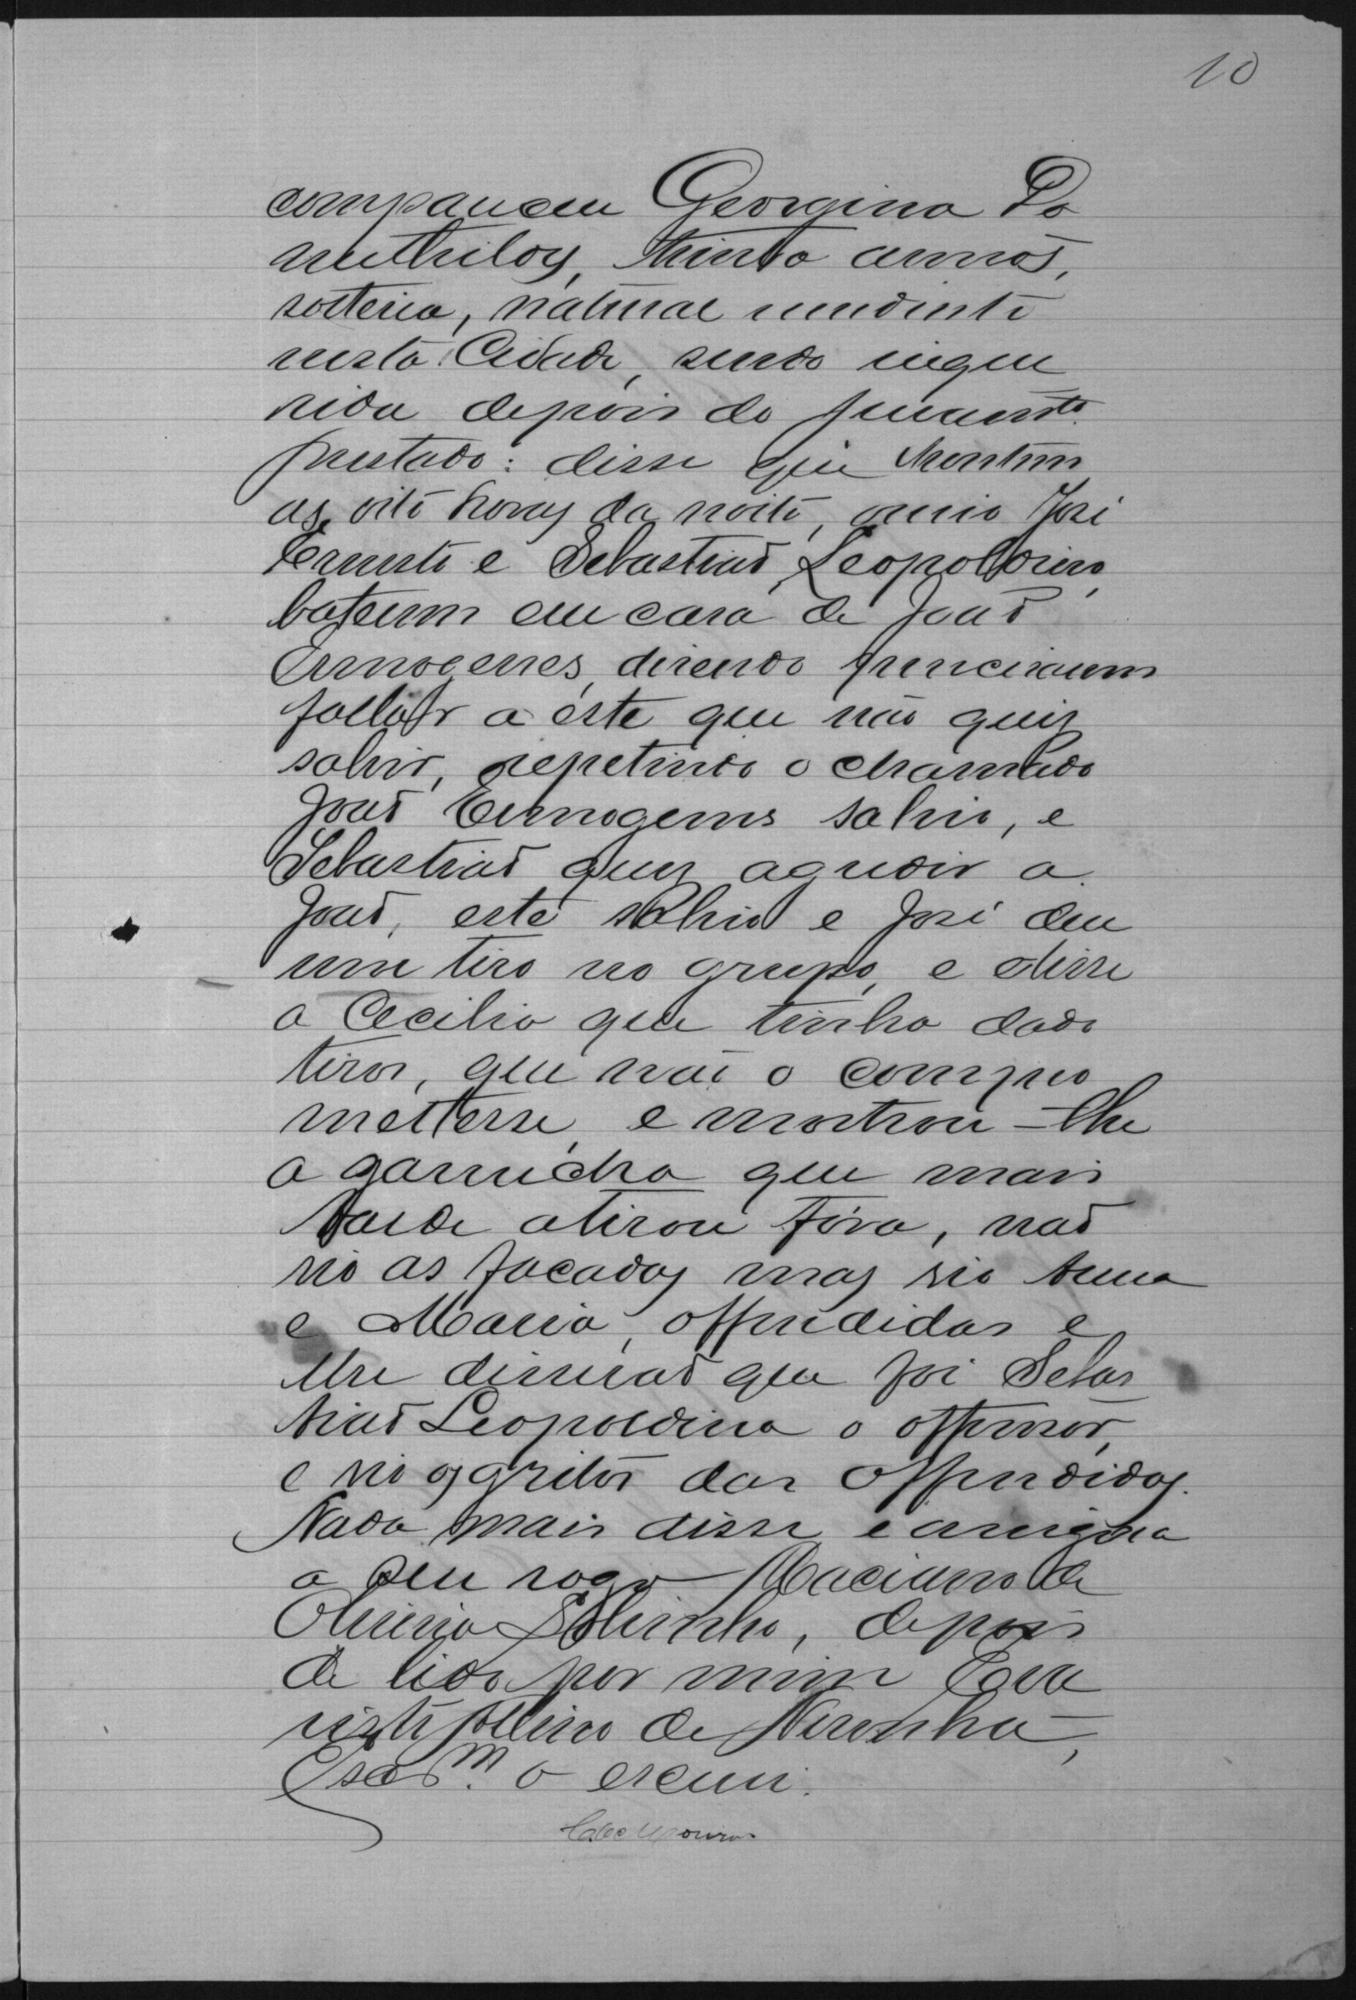 10
compareceu Georgina Do
trinta annos,
solteira, natural residente
nesta Cidade, sendo inque
rida depois do juramto.
prestado: disse que hontem
as oito horas da noite, ouvio José
Ernesto e Sebastião Leopoldino,
baterem em casa de João
Ermogenes, dizendo precizarem
fallar a este que não quiz
sahir, repetindo o chamado
João Ermogenes sahio, e
Sebastião quiz agredir a
João, este sahio e José deu
um tiro no grupo, e disse
a Cecilia que tinha dado
tiros, que não o compro
mettesse, e mostrou-lhe
a garrucha que mais
tarde atirou fóra, não
vio as facadas mas vio Anna
e Maria, offendidas e
lhe disserão que foi Sebas
tião Leopoldino o offensor,
e vio os gritos das offendidas.
Nada mais disse e assigna
a seu rogo Marciano de
Oliveira Sobrinho, depois
de lido por mim Eva
risto de Noronha,
Escram. o escrevi.